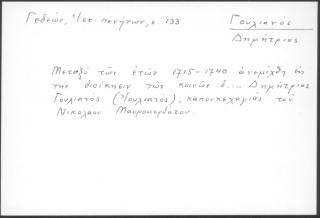 Γεδεών, Ἱστ. πενήτων, σ. 133
Γουλιανός
Δημήτριος
Μεταξὺ τῶν ἐτῶν 1715-1740 ἀνεμίχθη εἰς
τὴν διοίκησιν τῶν κοινῶν ὁ.... Δημήτριος
Γουλιανός (Ἰουλιανός), καπουκεχαγιᾶς τοῦ
Νικολάου Μαυροκορδάτου.